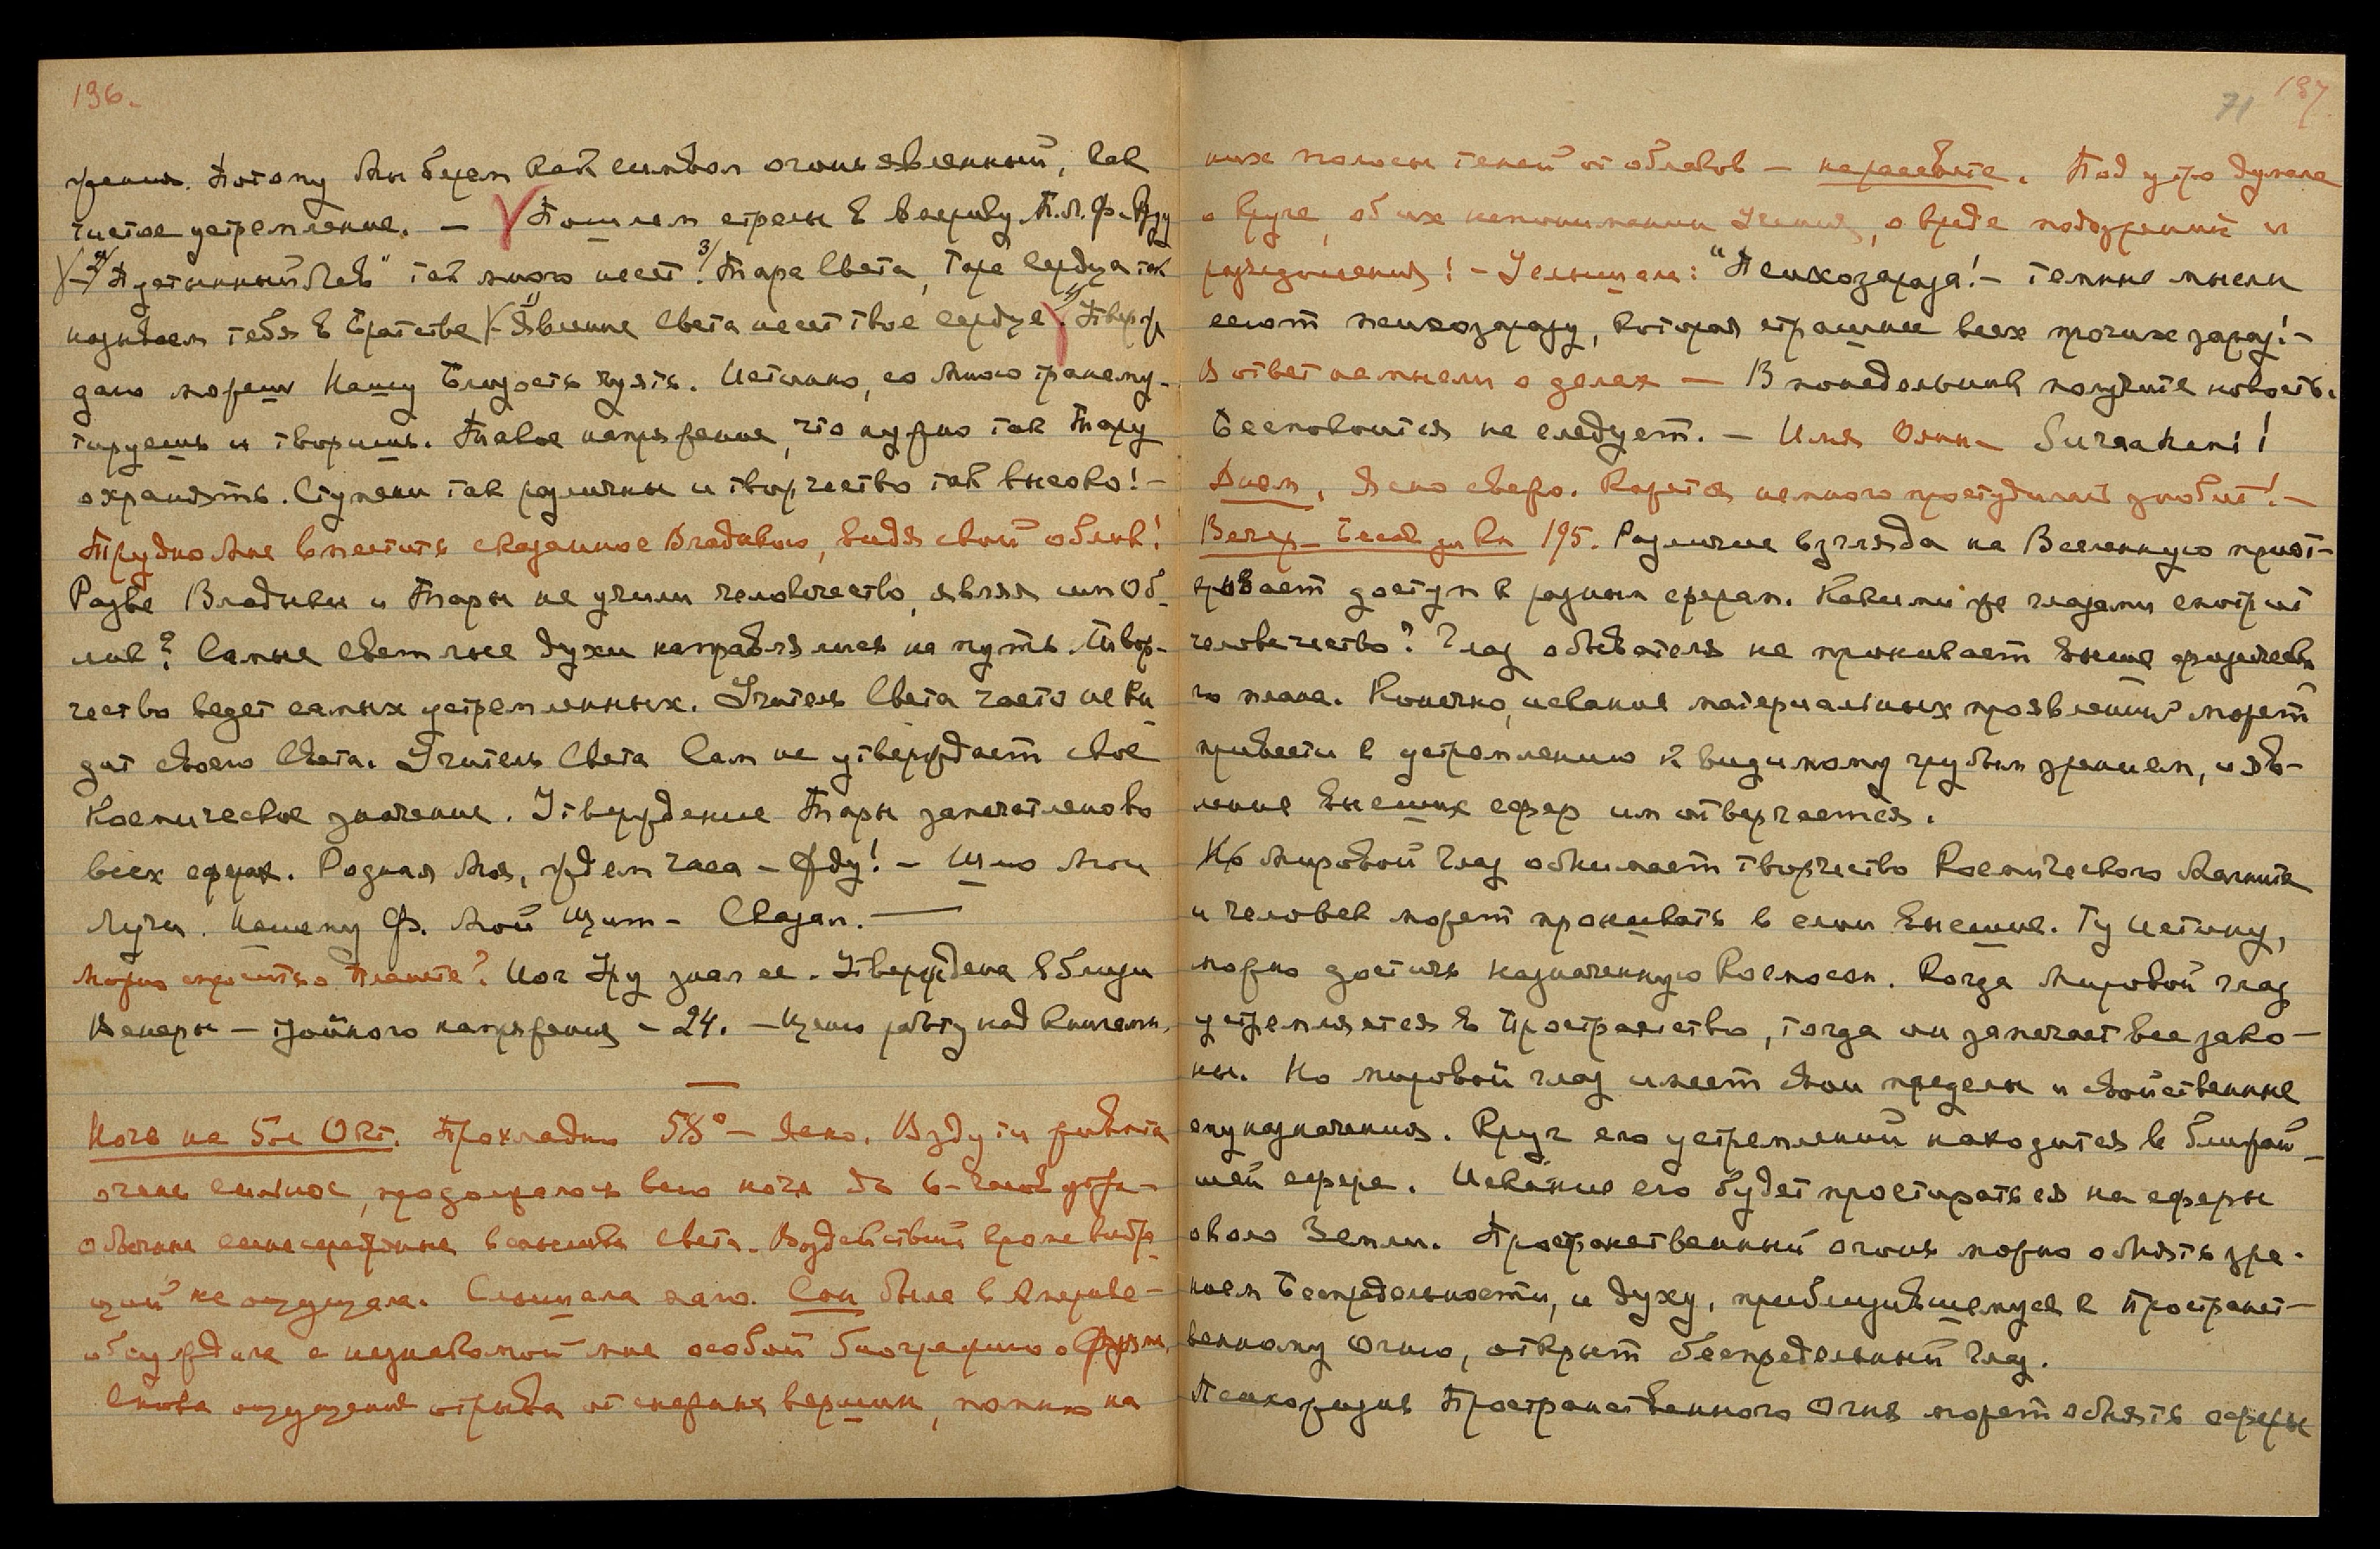 196.
жения. Потому Мы будем как символ огонь явленный, как
чистое устремление. — Пошлем стрелы в Америку. П. М. Ф.
2/ "Пустынный Лев" так много несет! 3/ Тара Света, Тара Сердца так
называем тебя в Братстве — 1/ Явление Света несет твое сердце. 4/ Утверж-
даю можешь Нашу Близость чуять. Истинно, со Мною трансму-
тируешь и творишь. Такое напряжение, что нужно так Тару
охранять. Ступени так различны и творчество так высоко! —
Трудно мне вместить сказанное Владыкою, видя свой облик!
Разве Владыки и Тары не учили человечество, являя им Об-
лик? Самые светлые духи направлялись на путь. Твор-
чество ведет самых устремленных. Учитель Света часто не ви-
дит своего Света. Учитель Света Сам не утверждает свое
Космическое значение. Утверждение Тары запечатлено во
всех сферах. Родная Моя, ждем часа — Жду! — Шлю Мои
Лучи. Нашему Ф. Мой Щит — Сказал. —
Можно спросить о Планете? Йог Уру знал ее. Утверждена вблизи
Венеры — тройного напряжения — 24. — Ценю работу над книгами.
Ночь на 5ое Окт. Прохладно 58° — Ясно. Вздутие живота
очень сильное, продолжалось всю ночь до 6-часов утра —
обычные вспышки света. Воздействий кроме вибра-
ций не ощущала. Слышала мало. Сон была в Америке —
обсуждала с незнакомой мне особой биографию о Фуяме,
снова ощущение отрыва от снежных вершин, помню на
71 197
них полосы теней от облаков — на рассвете. Под утро думала
о круге, об их непонимании Учения, о вреде подозрений и
разъединения! — Услышала: "Психозараза! — темные мысли
сеют психозаразу, которая страшнее всех прочих зараз! —
В ответ на мысли о делах — В понедельник получите новость.
Беспокоиться не следует. — Имя Surakhani!
Днем, Ясно свежо. Кажется немного простудилась знобит! —
Вечер — Беседа 195. Различие взгляда на Вселенную приот-
крывает доступ к разным сферам. Какими же глазами смотрит
человечество? Глаз обывателя не проникает выше физическо-
го плана. Конечно, искания материальных проявлений может
привести к устремлению к видимому грубым зрением, и яв-
ление высших сфер им отвергается.
Но Мировой глаз обнимает творчество Космического Магнита
и человек может проникать в слои высшие. Ту истину,
можно достичь назначенную Космосом. Когда мировой глаз
устремляется в Пространство, тогда он замечает все зако-
ны. Но мировой глаз имеет свои пределы и свойственные
ему назначения. Круг его устремлений находится в ближай-
шей сфере. Искание его будет простираться на сферы
около Земли. Пространственный огонь можно обнять зре-
нием Беспредельности, и духу, приблизившемуся к Пространст-
венному Огню, открыт беспредельный глаз.
Психожизнь Пространственного Огня может обнять сферы